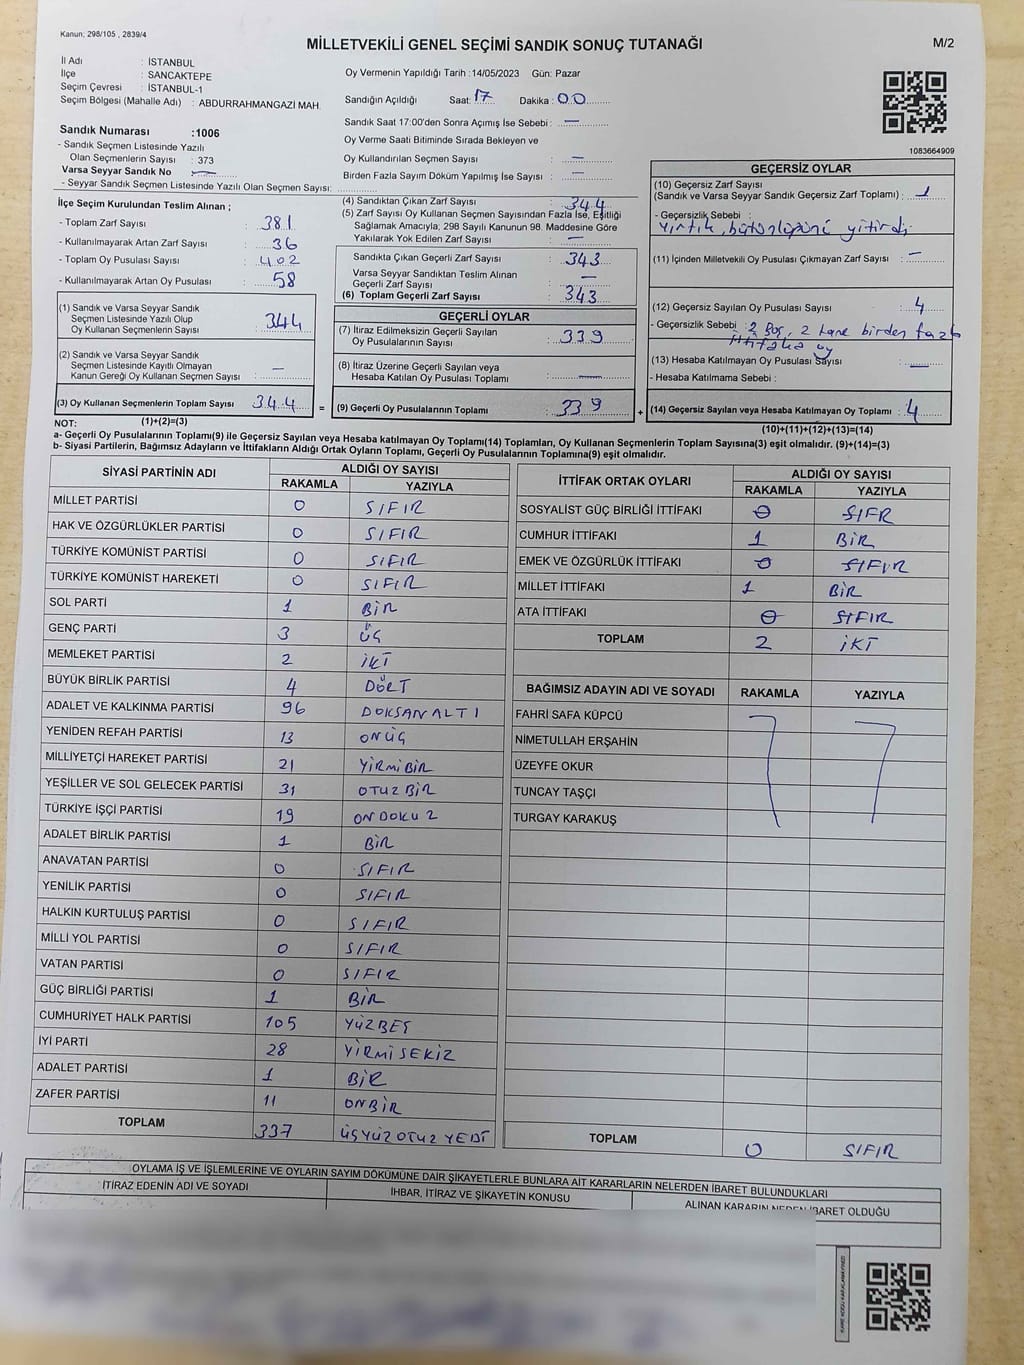 Kanun; 298/105 , 2839/4
MİLLETVEKİLİ GENEL SEÇİMİ SANDIK SONUÇ TUTANAĞI
M/2
İl Adı : İSTANBUL
İlçe : SANCAKTEPE
Seçim Çevresi : İSTANBUL-1
Seçim Bölgesi (Mahalle Adı) : ABDURRAHMANGAZİ MAH.
Oy Vermenin Yapıldığı Tarih :14/05/2023 Gün: Pazar
Sandığın Açıldığı Saat: 17 Dakika : 00
Sandık Saat 17:00'den Sonra Açımış İse Sebebi : —
Oy Verme Saati Bitiminde Sırada Bekleyen ve
Oy Kullandırılan Seçmen Sayısı : —
Birden Fazla Sayım Döküm Yapılmış İse Sayısı : —
1083664909
Sandık Numarası :1006
- Sandık Seçmen Listesinde Yazılı
Olan Seçmenlerin Sayısı : 373
Varsa Seyyar Sandık No : —
- Seyyar Sandık Seçmen Listesinde Yazılı Olan Seçmen Sayısı:
İlçe Seçim Kurulundan Teslim Alınan ;
- Toplam Zarf Sayısı : 381
- Kullanılmayarak Artan Zarf Sayısı : 36
- Toplam Oy Pusulası Sayısı : 402
- Kullanılmayarak Artan Oy Pusulası : 58
(1) Sandık ve Varsa Seyyar Sandık
Seçmen Listesinde Yazılı Olup
Oy Kullanan Seçmenlerin Sayısı : 344
(2) Sandık ve Varsa Seyyar Sandık
Seçmen Listesinde Kayıtlı Olmayan
Kanun Gereği Oy Kullanan Seçmen Sayısı : —
(3) Oy Kullanan Seçmenlerin Toplam Sayısı : 344 =
(1)+(2)=(3)
(4) Sandıktan Çıkan Zarf Sayısı : 344
(5) Zarf Sayısı Oy Kullanan Seçmen Sayısından Fazla İse, Eşitliği
Sağlamak Amacıyla, 298 Sayılı Kanunun 98. Maddesine Göre
Yakılarak Yok Edilen Zarf Sayısı : —
Sandıkta Çıkan Geçerli Zarf Sayısı : 343
Varsa Seyyar Sandıktan Teslim Alınan
Geçerli Zarf Sayısı : —
(6) Toplam Geçerli Zarf Sayısı : 343
GEÇERLİ OYLAR
(7) İtiraz Edilmeksizin Geçerli Sayılan
Oy Pusulalarının Sayısı : 339
(8) İtiraz Üzerine Geçerli Sayılan veya
Hesaba Katılan Oy Pusulası Toplamı : —
(9) Geçerli Oy Pusulalarının Toplamı : 339 +
GEÇERSİZ OYLAR
(10) Geçersiz Zarf Sayısı
(Sandık ve Varsa Seyyar Sandık Geçersiz Zarf Toplamı) : 1
- Geçersizlik Sebebi :
Yırtık, bütünlüğünü yitirdi.
(11) İçinden Milletvekili Oy Pusulası Çıkmayan Zarf Sayısı : —
(12) Geçersiz Sayılan Oy Pusulası Sayısı : 4
- Geçersizlik Sebebi : 2 Boş, 2 tane birden fazla
ittifaka oy
(13) Hesaba Katılmayan Oy Pusulası Sayısı : —
- Hesaba Katılmama Sebebi :
(14) Geçersiz Sayılan veya Hesaba Katılmayan Oy Toplamı : 4
(10)+(11)+(12)+(13)=(14)
NOT:
a- Geçerli Oy Pusulalarının Toplamı(9) ile Geçersiz Sayılan veya Hesaba katılmayan Oy Toplamı(14) Toplamları, Oy Kullanan Seçmenlerin Toplam Sayısına(3) eşit olmalıdır. (9)+(14)=(3)
b- Siyasi Partilerin, Bağımsız Adayların ve İttifakların Aldığı Ortak Oyların Toplamı, Geçerli Oy Pusulalarının Toplamına(9) eşit olmalıdır.
SİYASİ PARTİNİN ADI ALDIĞI OY SAYISI
RAKAMLA YAZIYLA
MİLLET PARTİSİ 0 SIFIR
HAK VE ÖZGÜRLÜKLER PARTİSİ 0 SIFIR
TÜRKİYE KOMÜNİST PARTİSİ 0 SIFIR
TÜRKİYE KOMÜNİST HAREKETİ 0 SIFIR
SOL PARTİ 1 BİR
GENÇ PARTİ 3 ÜÇ
MEMLEKET PARTİSİ 2 İKİ
BÜYÜK BİRLİK PARTİSİ 4 DÖRT
ADALET VE KALKINMA PARTİSİ 96 DOKSANALTI
YENİDEN REFAH PARTİSİ 13 ONÜÇ
MİLLİYETÇİ HAREKET PARTİSİ 21 YİRMİBİR
YEŞİLLER VE SOL GELECEK PARTİSİ 31 OTUZBİR
TÜRKİYE İŞÇİ PARTİSİ 19 ONDOKUZ
ADALET BİRLİK PARTİSİ 1 BİR
ANAVATAN PARTİSİ 0 SIFIR
YENİLİK PARTİSİ 0 SIFIR
HALKIN KURTULUŞ PARTİSİ 0 SIFIR
MİLLİ YOL PARTİSİ 0 SIFIR
VATAN PARTİSİ 0 SIFIR
GÜÇ BİRLİĞİ PARTİSİ 1 BİR
CUMHURİYET HALK PARTİSİ 105 YÜZBEŞ
İYİ PARTİ 28 YİRMİSEKİZ
ADALET PARTİSİ 1 BİR
ZAFER PARTİSİ 11 ONBİR
TOPLAM 337 ÜÇYÜZOTUZYEDİ
İTTİFAK ORTAK OYLARI ALDIĞI OY SAYISI
RAKAMLA YAZIYLA
SOSYALİST GÜÇ BİRLİĞİ İTTİFAKI 0 SIFR
CUMHUR İTTİFAKI 1 BİR
EMEK VE ÖZGÜRLÜK İTTİFAKI 0 SIFIR
MİLLET İTTİFAKI 1 BİR
ATA İTTİFAKI 0 SIFIR
TOPLAM 2 İKİ
BAĞIMSIZ ADAYIN ADI VE SOYADI RAKAMLA YAZIYLA
FAHRİ SAFA KÜPCÜ
NİMETULLAH ERŞAHİN
ÜZEYFE OKUR
TUNCAY TAŞÇI
TURGAY KARAKUŞ
TOPLAM 0 SIFIR
OYLAMA İŞ VE İŞLEMLERİNE VE OYLARIN SAYIM DÖKÜMÜNE DAİR ŞİKAYETLERLE BUNLARA AİT KARARLARIN NELERDEN İBARET BULUNDUKLARI
İTİRAZ EDENİN ADI VE SOYADI İHBAR, İTİRAZ VE ŞİKAYETİN KONUSU ALINAN KARARIN NEDEN İBARET OLDUĞU